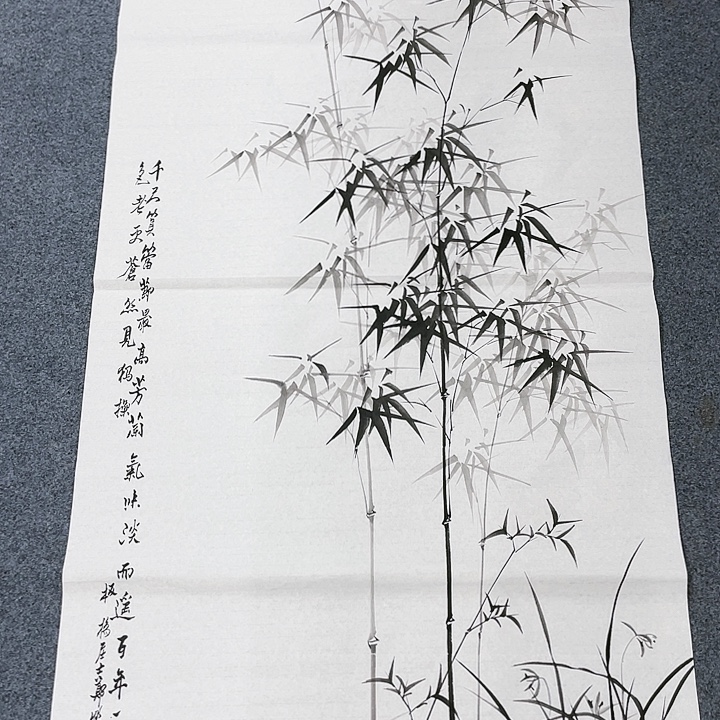 千尺篔簹節最高芳蘭氣味淡而遥百年
色老更蒼然見獨操
板橋居士鄭